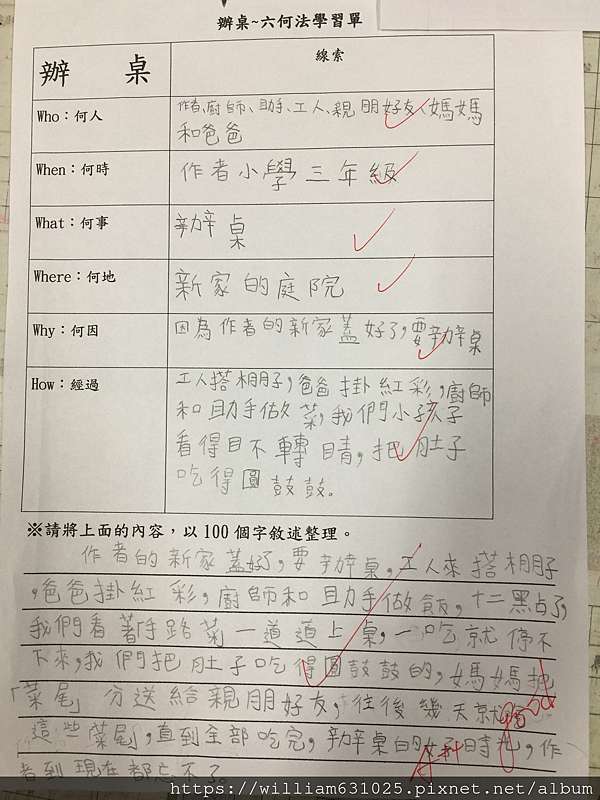 辦桌~六何法學習單
辦 桌
線索
Who：何人
作者、廚師、助手、工人、親朋好友、媽媽
和爸爸
When：何時
作者小學三年級
What：何事
辦桌
Where：何地
新家的庭院
Why：何因
因為作者的新家蓋好了，要辦桌
How：經過
工人搭棚子，爸爸掛紅彩，廚師
和助手做菜，我們小孩子
看得目不轉睛，把肚子
吃得圓鼓鼓。
※請將上面的內容，以100個字敘述整理。
作者的新家蓋好了，要辦桌，工人來搭棚子
，爸爸掛紅彩，廚師和助手做飯，十二點了，
我們看著手路菜一道道上桌，一吃就停不
下來，我們把肚子吃得圓鼓鼓的，媽媽把
「菜尾」分送給親朋好友，往後幾天就
這些「菜尾」，直到全部吃完，辦桌的時，作
者到現在都忘不了。
https://william631025.pixnet.net/album